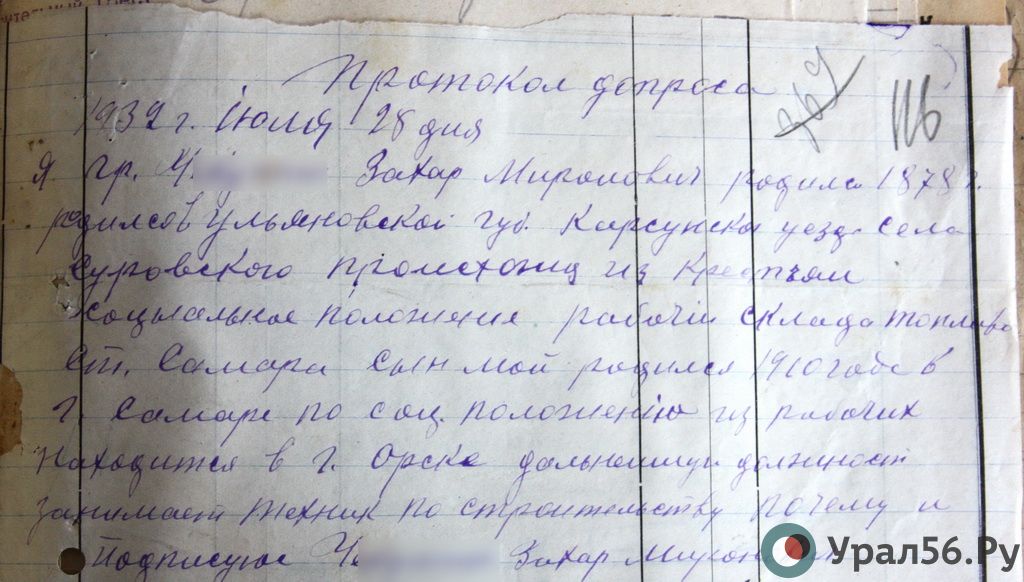 Протокол допроса
1932 г. Июля 28 дня
116
Я гр. Ч Захар Миронович родилс 1878 г.
родилсов Ульяновской губ. Карсунска уезд. села
Суровского происхожд из крестьян
социальное положение рабочий склада топлива
ст. Самара сын мой родился 1910 года в
г. Самаре по соц. положению из рабочих
находится в г. Орске дальнейшую должност
занимает техник по строительству почему и
подписуюс Ч. Захар Мирон
Урал56.Ру